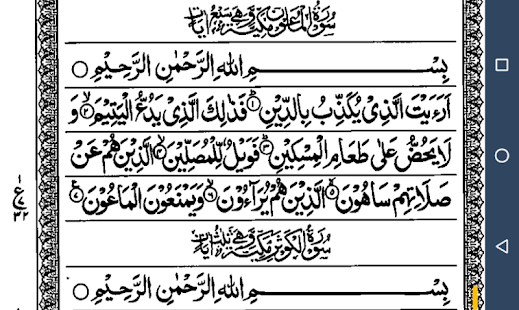 سُوْرَةُ الْمَاعُوْنِ مَكِّيَّةٌ وَّهِيَ سَبْعُ اٰيَاتٍ
بِسْمِ اللّٰهِ الرَّحْمٰنِ الرَّحِيْمِ ○
اَرَءَيْتَ الَّذِيْ يُكَذِّبُ بِالدِّيْنِ ۝١ فَذٰلِكَ الَّذِيْ يَدُعُّ الْيَتِيْمَ ۝٢ وَ
لَا يَحُضُّ عَلٰى طَعَامِ الْمِسْكِيْنِ ۝٣ فَوَيْلٌ لِّلْمُصَلِّيْنَ ۝٤ الَّذِيْنَ هُمْ عَنْ
صَلَاتِهِمْ سَاهُوْنَ ۝٥ الَّذِيْنَ هُمْ يُرَآءُوْنَ ۝٦ وَيَمْنَعُوْنَ الْمَاعُوْنَ ۝٧
١
ع
٧
٣٢
سُوْرَةُ الْكَوْثَرِ مَكِّيَّةٌ وَّهِيَ ثَلٰثُ اٰيَاتٍ
بِسْمِ اللّٰهِ الرَّحْمٰنِ الرَّحِيْمِ ○